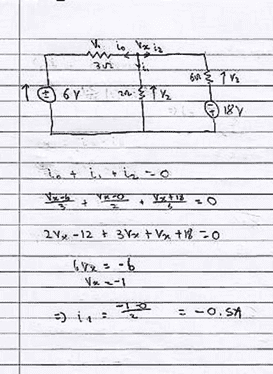 V₁ i₀ Vx i₂
3Ω i₁ 6Ω V₂
6V 2Ω V₂ 18V
i₀ + i₁ + i₂ = 0
(Vx-6)/3 + (Vx-0)/2 + (Vx+18)/6 = 0
2Vx - 12 + 3Vx + Vx + 18 = 0
6Vx = -6
Vx = -1
=> i₁ = (-1-0)/2 = -0.5A